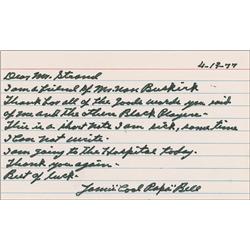 4-19-77
Dear Mr. Strand
I am a friend of Mr. Van Buskirk
Thank for all of the Goods words you said
of me and the other Black Players-
This is a short note I am sick, sometime
I Can not write.
I am going to the Hospital today.
Thank you again-
Best of luck-
James "Cool Papa" Bell